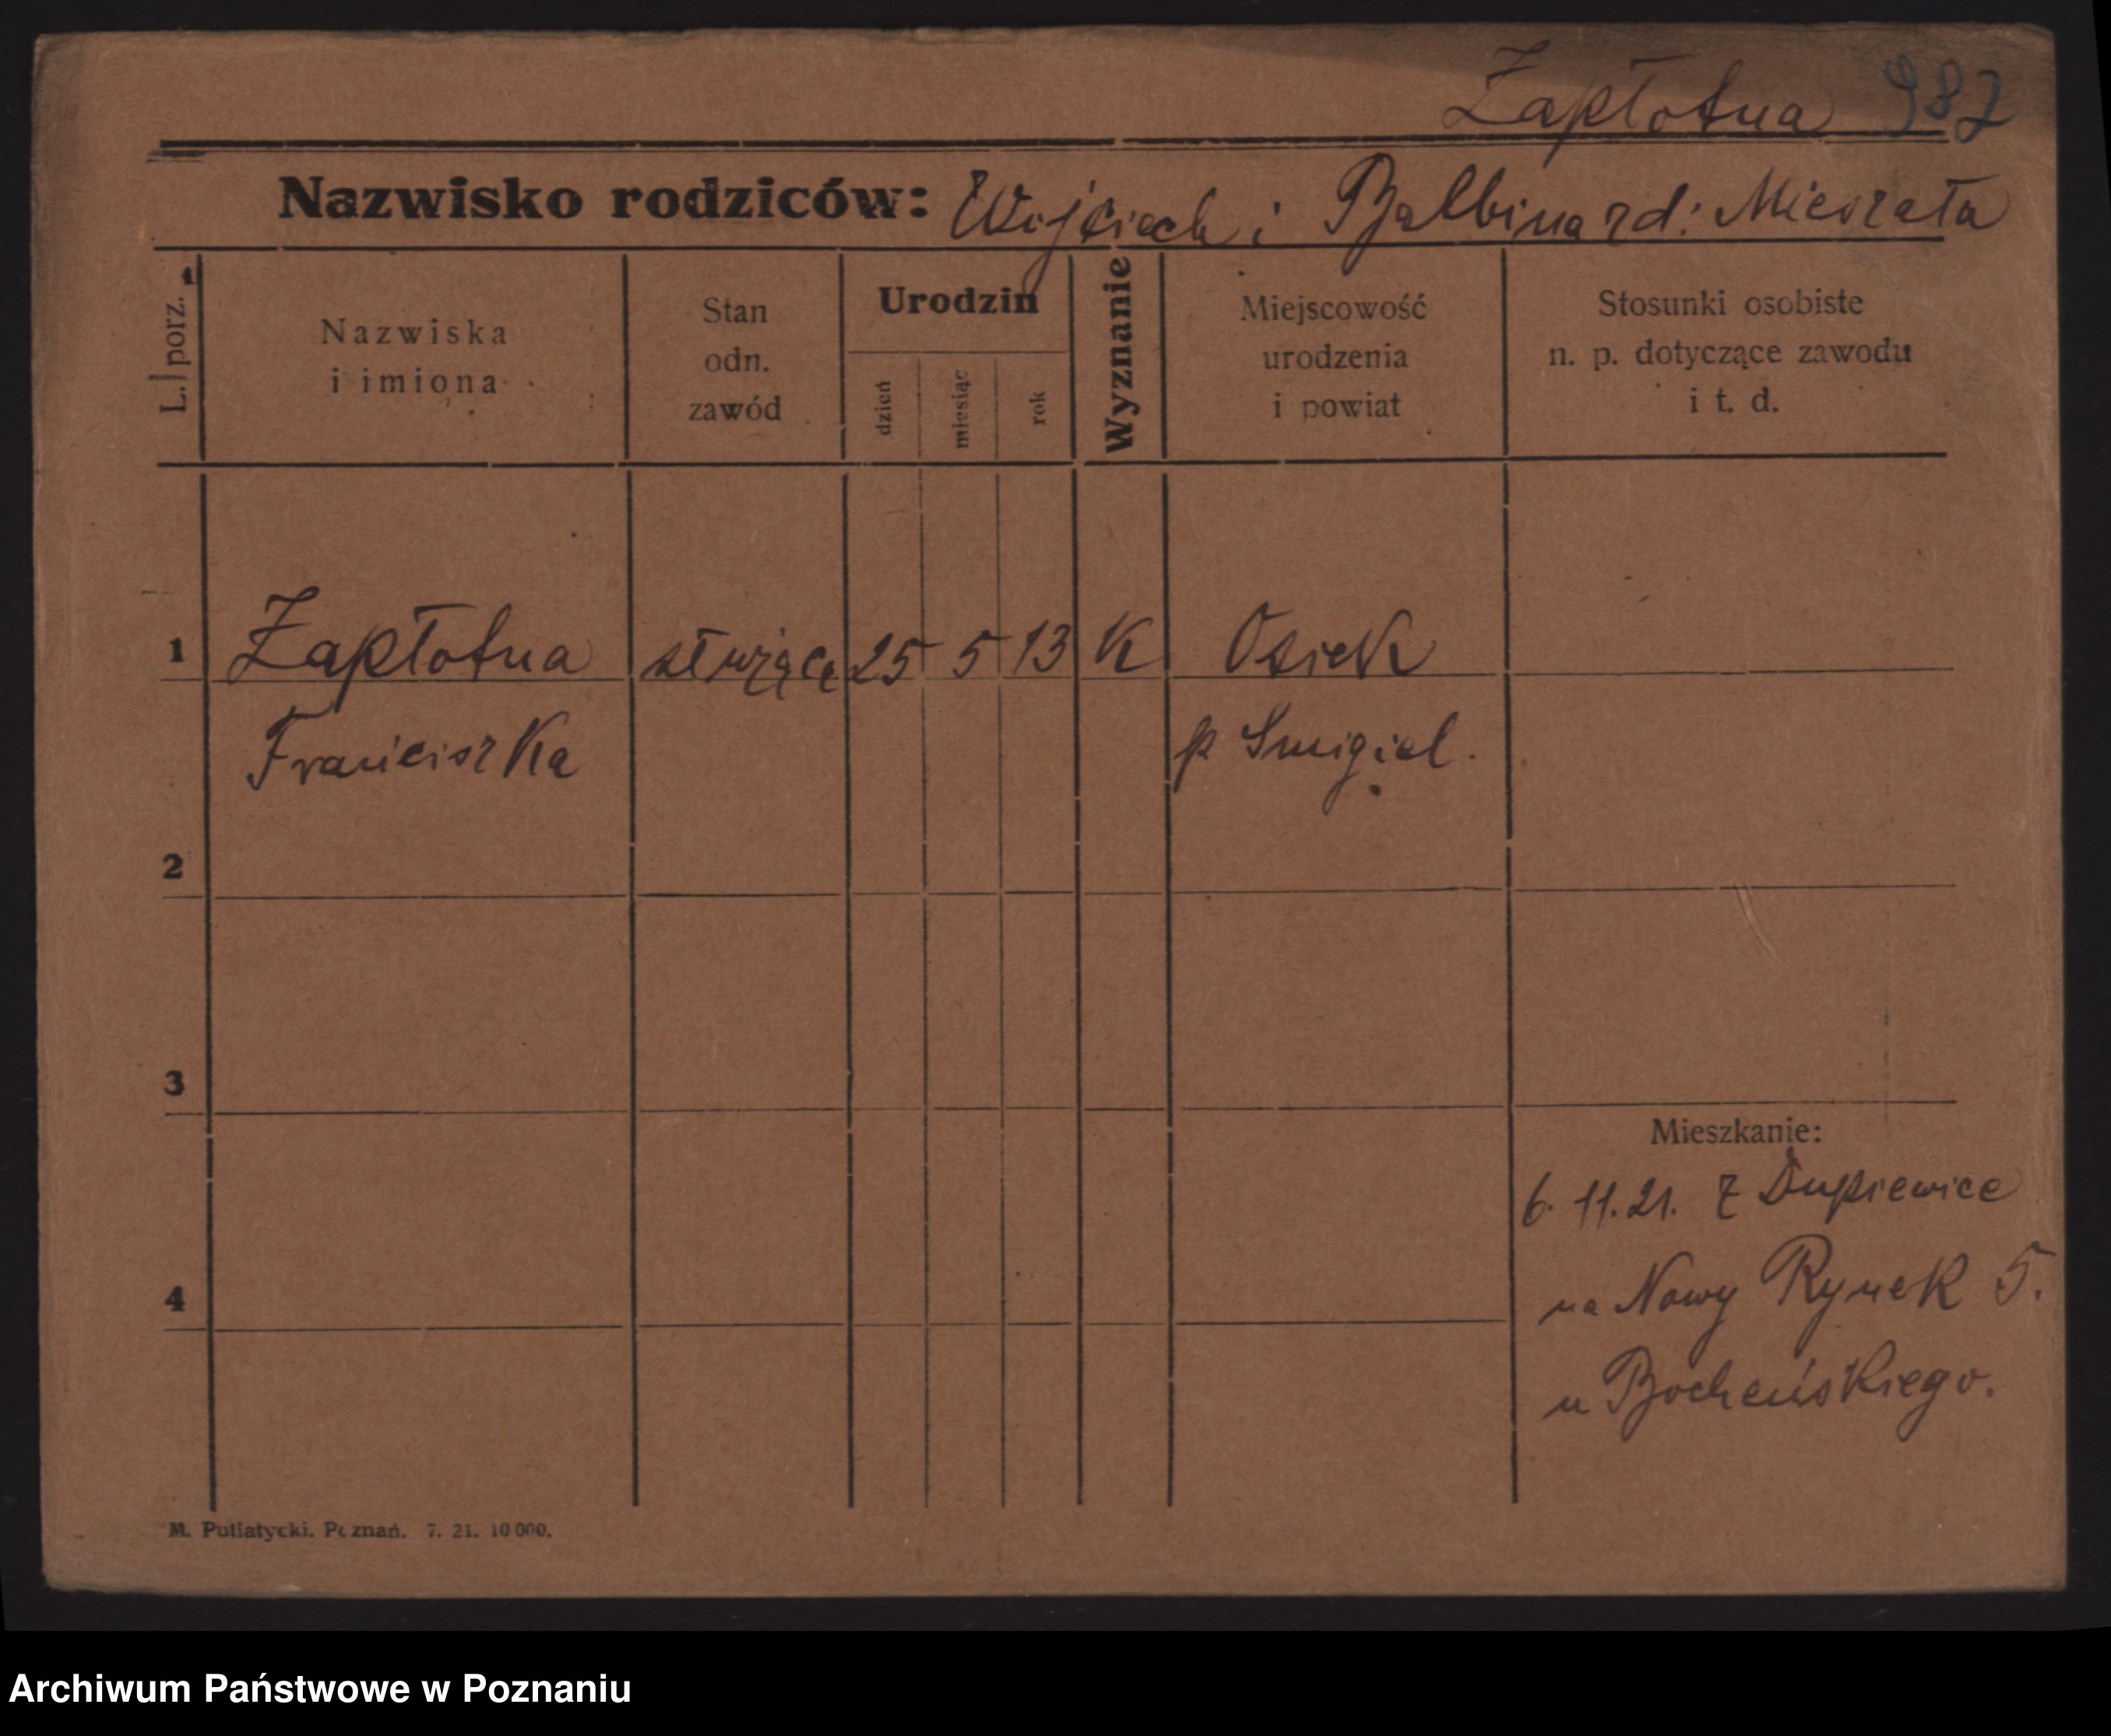 Zapłotna 982
Nazwisko rodziców: Wojciech i Balbina rd: Mieszała
L. porz.
Nazwiska
i imiona
Stan
odn.
zawód
Urodzin
dzień
miesiąc
rok
Wyznanie
Miejscowość
urodzenia
i powiat
Stosunki osobiste
n. p. dotyczące zawodu
i t. d.
1 Zapłotna służąca 25 5 13 K Osiek
Franciszka p Smigiel.
2
3
Mieszkanie:
6. 11. 21. z Dupiewice
4 na Nowy Rynek 5.
u Bocheńskiego.
M. Putiatycki. Poznań. 7. 21. 10 000.
Archiwum Państwowe w Poznaniu